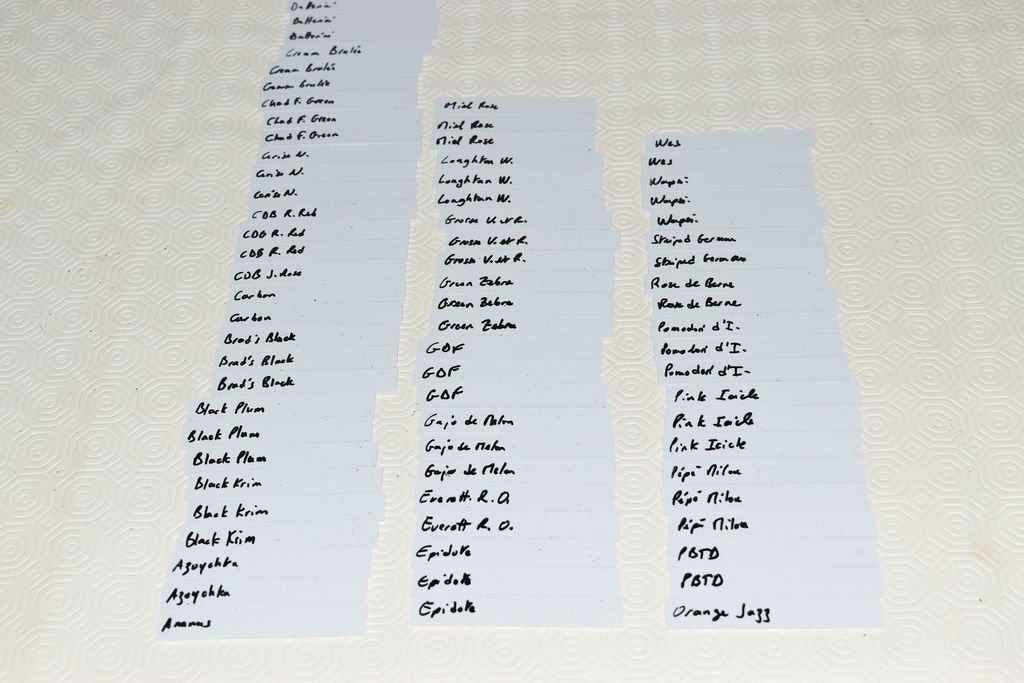 Datterini
Datterini
Datterini
Cream Brulée
Cream Brulée
Cream Brulée
Chad F. Green
Chad F. Green
Chad F. Green
Cerise N.
Cerise N.
Cerise N.
CDB R. Red
CDB R. Red
CDB R. Red
CDB J. Rose
Carbon
Carbon
Brad's Black
Brad's Black
Brad's Black
Black Plum
Black Plum
Black Plum
Black Krim
Black Krim
Black Krim
Azoychka
Azoychka
Ananas
Miel Rose
Miel Rose
Miel Rose
Loughton W.
Loughton W.
Loughton W.
Grosse V. et R.
Grosse V. et R.
Grosse V. et R.
Green Zebra
Green Zebra
Green Zebra
GDF
GDF
GDF
Gajo de Melon
Gajo de Melon
Gajo de Melon
Everett R. O.
Everett R. O.
Epidote
Epidote
Epidote
Wes
Wes
Wapsi
Wapsi
Wapsi
Striped German
Striped German
Rose de Berne
Rose de Berne
Pomodori d'I.
Pomodori d'I.
Pomodori d'I-
Pink Icicle
Pink Icicle
Pink Icicle
Pépé Milou
Pépé Milou
Pépé Milou
PBTD
PBTD
Orange Jazz